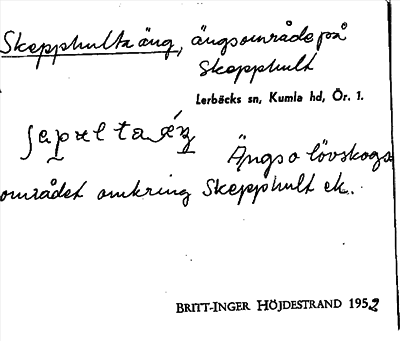 Skepphulta äng, ängsområde på
Skepphult
Lerbäcks sn, Kumla hd, Ör. 1.
Ängs o lövskogs
området omkring Skepphult ek.
BRITT-INGER HÖJDESTRAND 1952